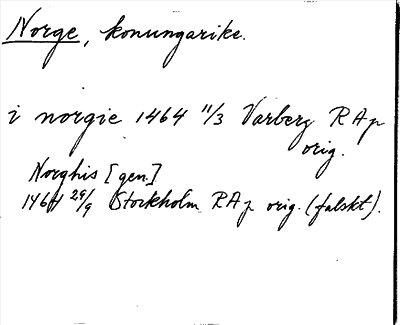 Norge, konungarike.
i norgie 1464 11/3 Varberg RAp
orig.
Norghis [gen.]
1464 29/9 Stockholm RAp orig. (falskt).